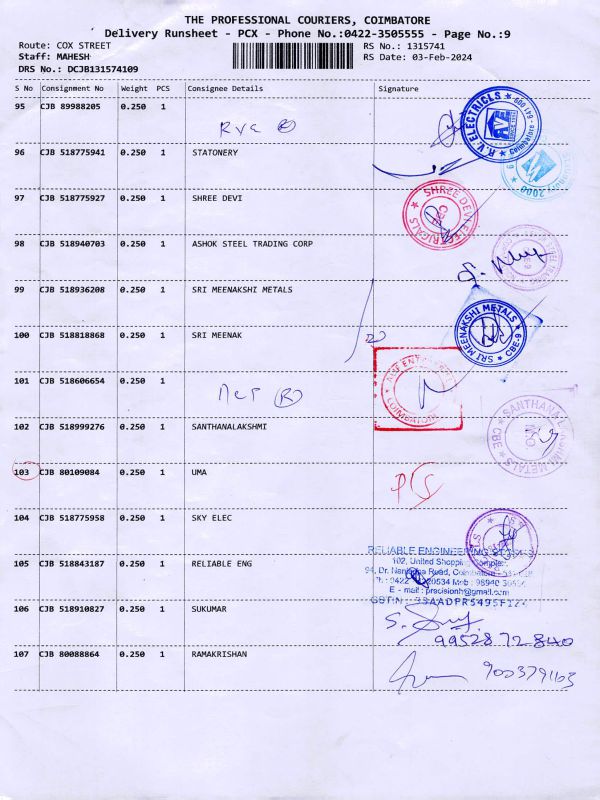 THE PROFESSIONAL COURIERS, COIMBATORE
Delivery Runsheet - PCX - Phone No.:0422-3505555 - Page No.:9
Route: COX STREET RS No.: 1315741
Staff: MAHESH RS Date: 03-Feb-2024
DRS No.: DCJB131574109
S No Consignment No Weight PCS Consignee Details Signature
95 CJB 89988205 0.250 1
R.V. ELECTRICLS
96 CJB 518775941 0.250 1 STATONERY
97 CJB 518775927 0.250 1 SHREE DEVI
SHREE DEVI ELECTRICALS CBE
98 CJB 518940703 0.250 1 ASHOK STEEL TRADING CORP
99 CJB 518936208 0.250 1 SRI MEENAKSHI METALS
SRI MEENAKSHI METALS CBE-9
100 CJB 518818868 0.250 1 SRI MEENAK
101 CJB 518606654 0.250 1
COIMBATORE
102 CJB 518999276 0.250 1 SANTHANALAKSHMI
SANTHANA LAKSHMI METALS CBE
103 CJB 80109084 0.250 1 UMA
104 CJB 518775958 0.250 1 SKY ELEC
105 CJB 518843187 0.250 1 RELIABLE ENG
RELIABLE ENGINEERING STORES
102, United Shopping Complex,
E - mail : precisionh@gmail.com
106 CJB 518910827 0.250 1 SUKUMAR
9952872840
107 CJB 80088864 0.250 1 RAMAKRISHAN